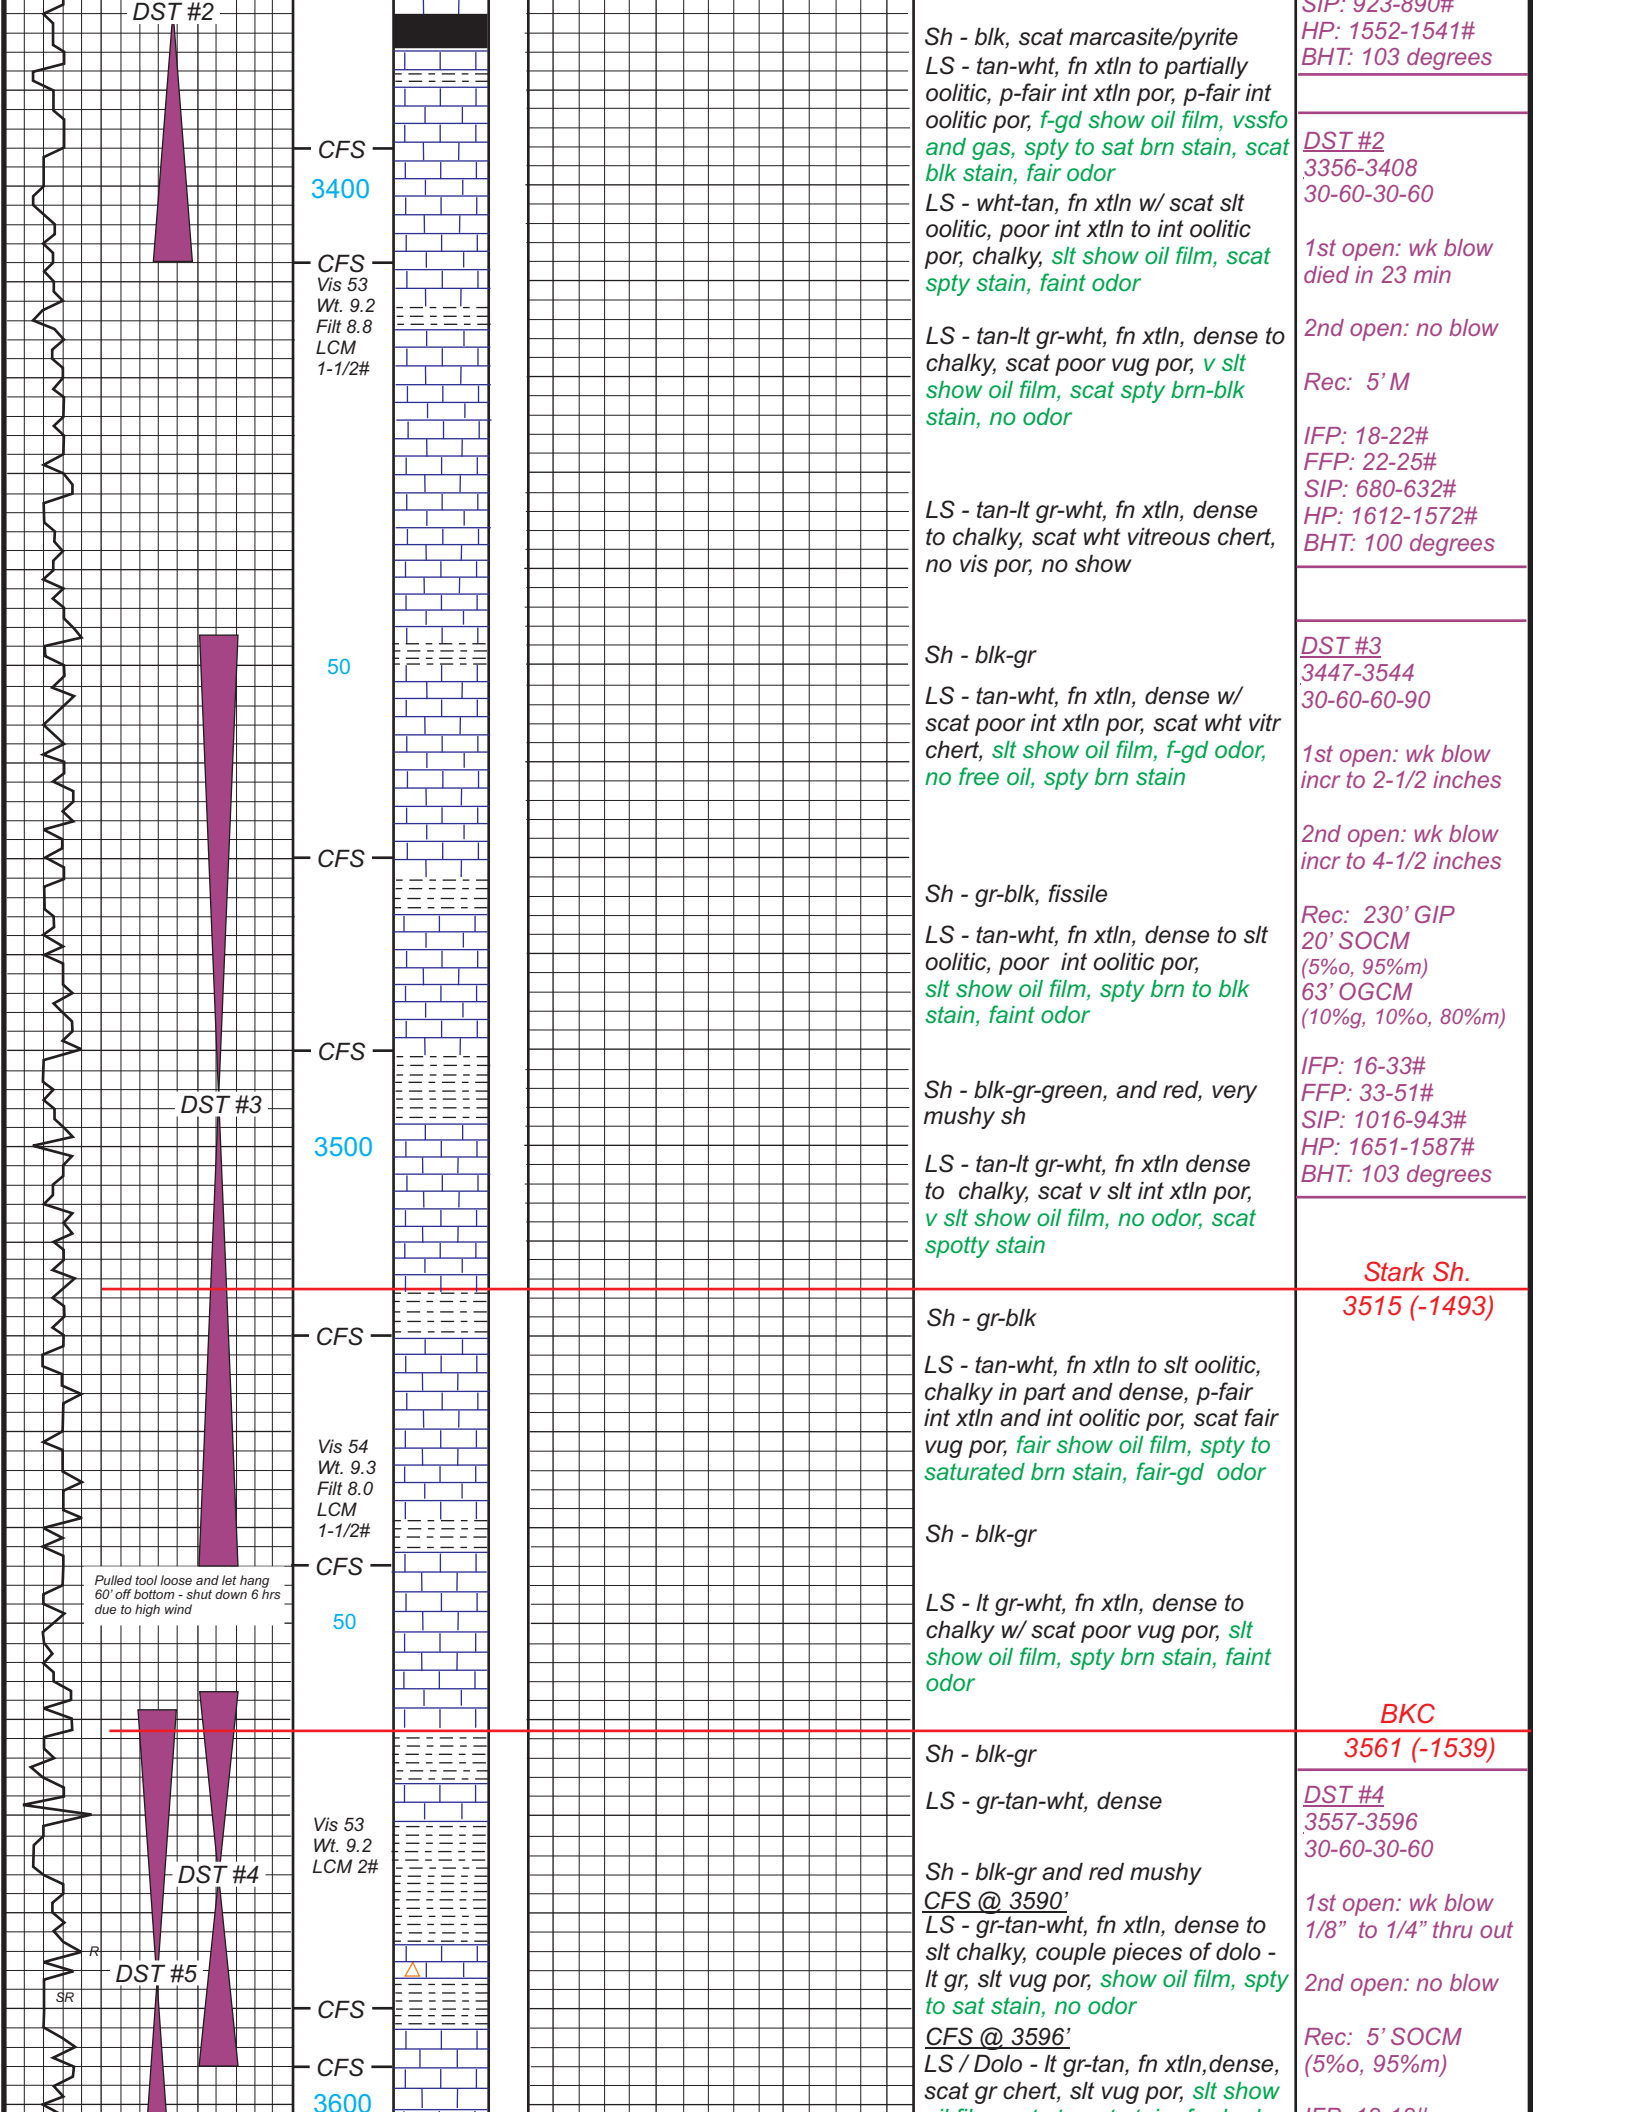 DST #2
CFS
3400
CFS
Vis 53
Wt. 9.2
Filt 8.8
LCM
1-1/2#
50
CFS
CFS
DST #3
3500
CFS
Vis 54
Wt. 9.3
Filt 8.0
LCM
1-1/2#
CFS
Pulled tool loose and let hang
60' off bottom - shut down 6 hrs
due to high wind
50
Vis 53
Wt. 9.2
LCM 2#
DST #4
R
DST #5
SR
CFS
CFS
3600
Sh - blk, scat marcasite/pyrite
LS - tan-wht, fn xtln to partially
oolitic, p-fair int xtln por, p-fair int
oolitic por, f-gd show oil film, vssfo
and gas, spty to sat brn stain, scat
blk stain, fair odor
LS - wht-tan, fn xtln w/ scat slt
oolitic, poor int xtln to int oolitic
por, chalky, slt show oil film, scat
spty stain, faint odor
LS - tan-lt gr-wht, fn xtln, dense to
chalky, scat poor vug por, v slt
show oil film, scat spty brn-blk
stain, no odor
LS - tan-lt gr-wht, fn xtln, dense
to chalky, scat wht vitreous chert,
no vis por, no show
Sh - blk-gr
LS - tan-wht, fn xtln, dense w/
scat poor int xtln por, scat wht vitr
chert, slt show oil film, f-gd odor,
no free oil, spty brn stain
Sh - gr-blk, fissile
LS - tan-wht, fn xtln, dense to slt
oolitic, poor int oolitic por,
slt show oil film, spty brn to blk
stain, faint odor
Sh - blk-gr-green, and red, very
mushy sh
LS - tan-lt gr-wht, fn xtln dense
to chalky, scat v slt int xtln por,
v slt show oil film, no odor, scat
spotty stain
Sh - gr-blk
LS - tan-wht, fn xtln to slt oolitic,
chalky in part and dense, p-fair
int xtln and int oolitic por, scat fair
vug por, fair show oil film, spty to
saturated brn stain, fair-gd odor
Sh - blk-gr
LS - lt gr-wht, fn xtln, dense to
chalky w/ scat poor vug por, slt
show oil film, spty brn stain, faint
odor
Sh - blk-gr
LS - gr-tan-wht, dense
Sh - blk-gr and red mushy
CFS @ 3590'
LS - gr-tan-wht, fn xtln, dense to
slt chalky, couple pieces of dolo -
lt gr, slt vug por, show oil film, spty
to sat stain, no odor
CFS @ 3596'
LS / Dolo - lt gr-tan, fn xtln,dense,
scat gr chert, slt vug por, slt show
SIP: 923-890#
HP: 1552-1541#
BHT: 103 degrees
DST #2
3356-3408
30-60-30-60
1st open: wk blow
died in 23 min
2nd open: no blow
Rec: 5' M
IFP: 18-22#
FFP: 22-25#
SIP: 680-632#
HP: 1612-1572#
BHT: 100 degrees
DST #3
3447-3544
30-60-60-90
1st open: wk blow
incr to 2-1/2 inches
2nd open: wk blow
incr to 4-1/2 inches
Rec: 230' GIP
20' SOCM
(5%o, 95%m)
63' OGCM
(10%g, 10%o, 80%m)
IFP: 16-33#
FFP: 33-51#
SIP: 1016-943#
HP: 1651-1587#
BHT: 103 degrees
Stark Sh.
3515 (-1493)
BKC
3561 (-1539)
DST #4
3557-3596
30-60-30-60
1st open: wk blow
1/8" to 1/4" thru out
2nd open: no blow
Rec: 5' SOCM
(5%o, 95%m)